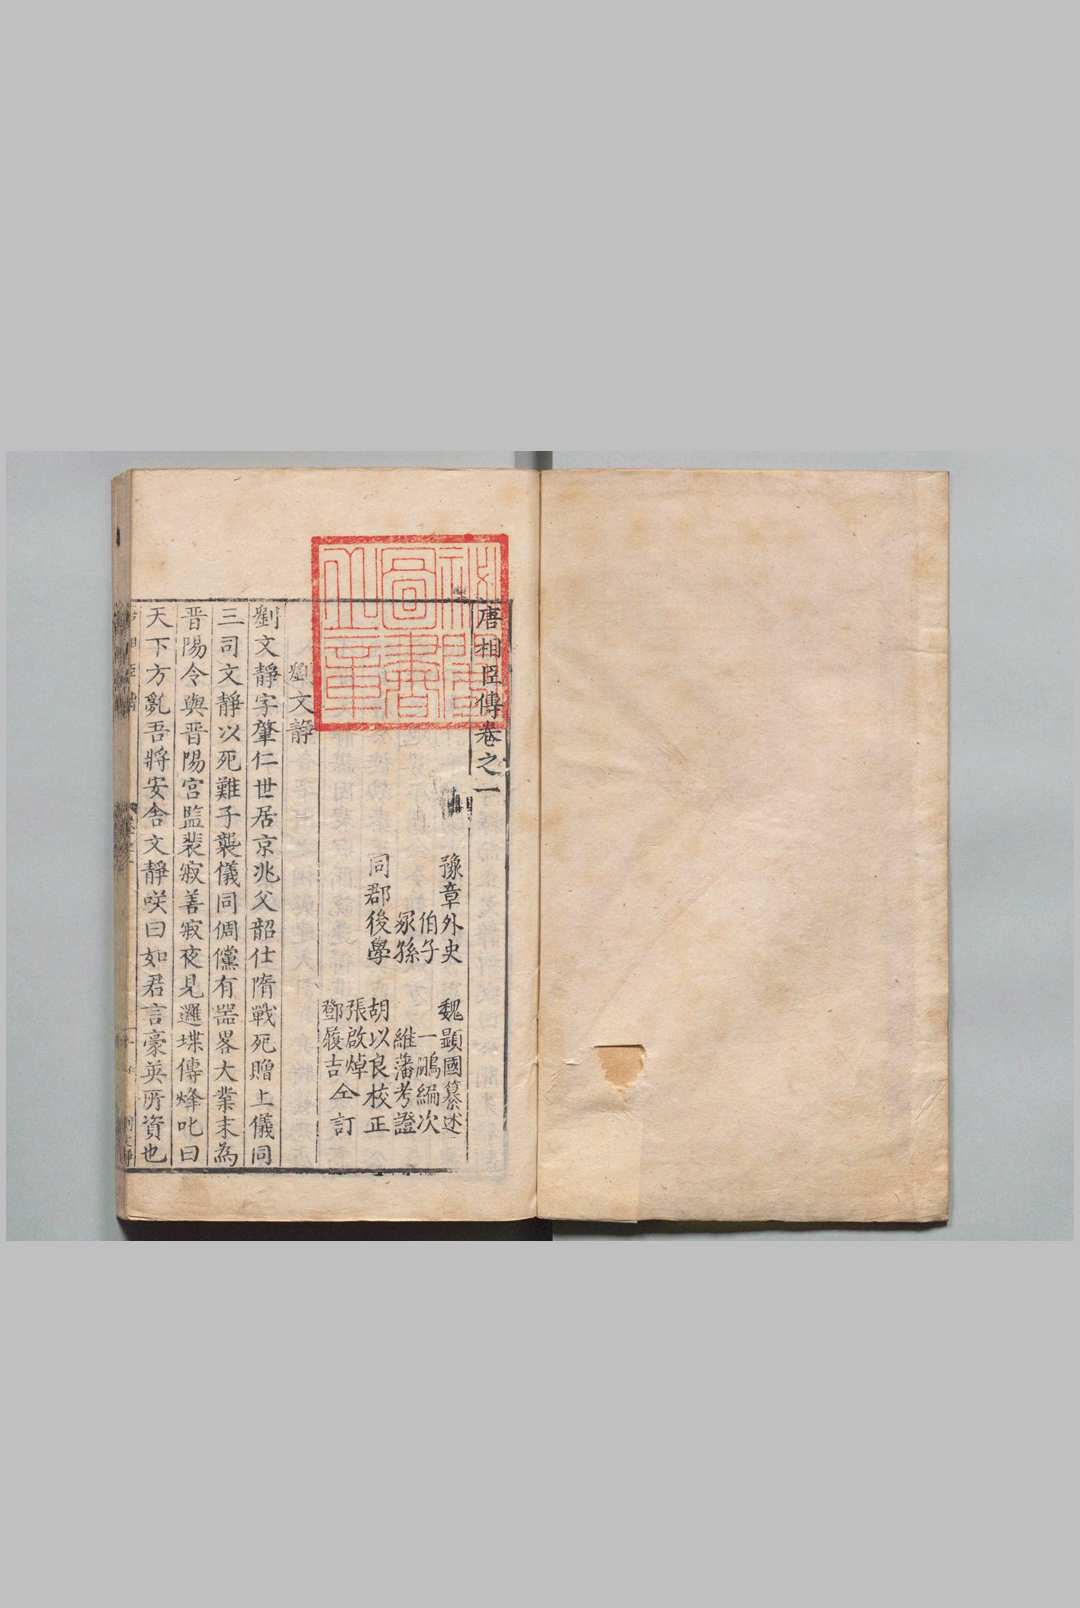 唐相臣傳卷之一
豫章外史 魏顯國纂述
伯子 一鵬編次
冢孫 維藩考證
同郡後學 胡以良校正
張啟焯
鄧履吉 仝訂
劉文靜
劉文靜字肇仁世居京兆父韶仕隋戰死贈上儀同
三司文靜以死難子襲儀同倜儻有器畧大業末為
晋陽令與晋陽宮監裴寂善寂夜見邏堞傳烽叱曰
天下方亂吾將安舍文靜咲曰如君言豪英所資也
秘閣圖書之章